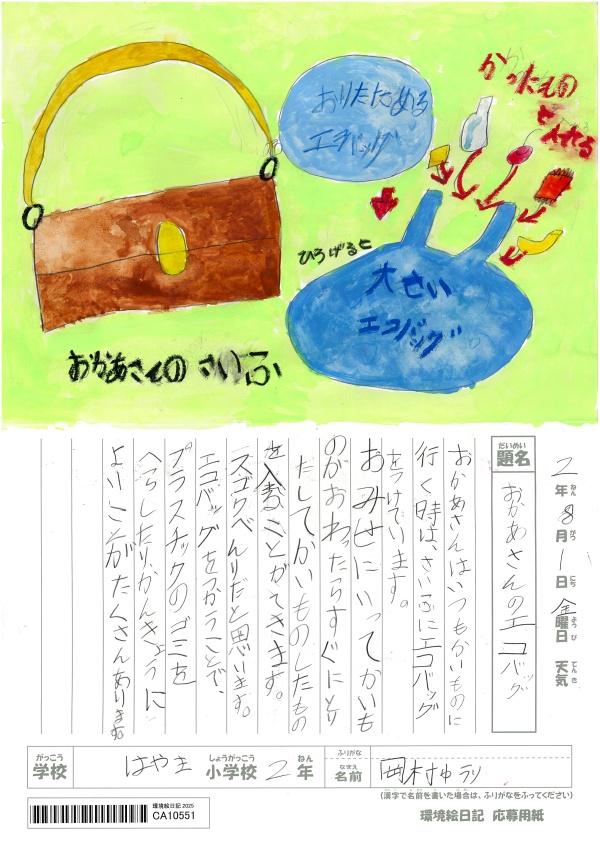 おりたためる
エコバッグ
かったもの
を入れる
ひろげると
大せい
エコバッグ
おかあさんの さいふ
2年8月1日金曜日 天気
ねん がつ にち ようび てんき
だいめい
題名
おかあさんのエコバッグ
おかあさんはいつもかいものに
行く時は、さいふにエコバッグ
をつけています。
おみせにいってかいも
のがおわったらすぐにとり
だしてかいものしたもの
を入れることができます。
スゴクべんりだと思います。
エコバッグをつかうことで、
プラスチックのゴミを
へらしたり、かんきょうに
よいことがたくさんあります。
がっこう しょうがっこう ねん ふりがな
学校 はやき 小学校 2年
なまえ
名前 岡村ゆうり
(漢字で名前を書いた場合は、ふりがなをふってください)
環境絵日記 2025
CA10551
環境絵日記 応募用紙